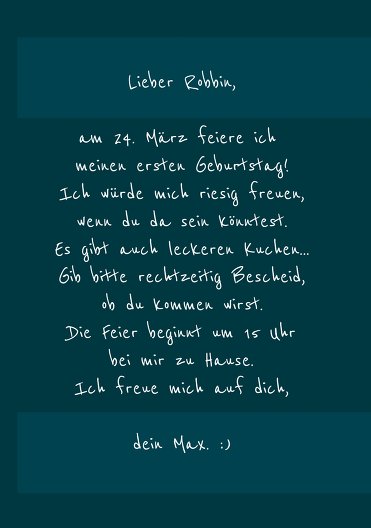 Lieber Robbin,
am 24. März feiere ich
meinen ersten Geburtstag!
Ich würde mich riesig freuen,
wenn du da sein könntest.
Es gibt auch leckeren Kuchen...
Gib bitte rechtzeitig Bescheid,
ob du kommen wirst.
Die Feier beginnt um 15 Uhr
bei mir zu Hause.
Ich freue mich auf dich,
dein Max. :)